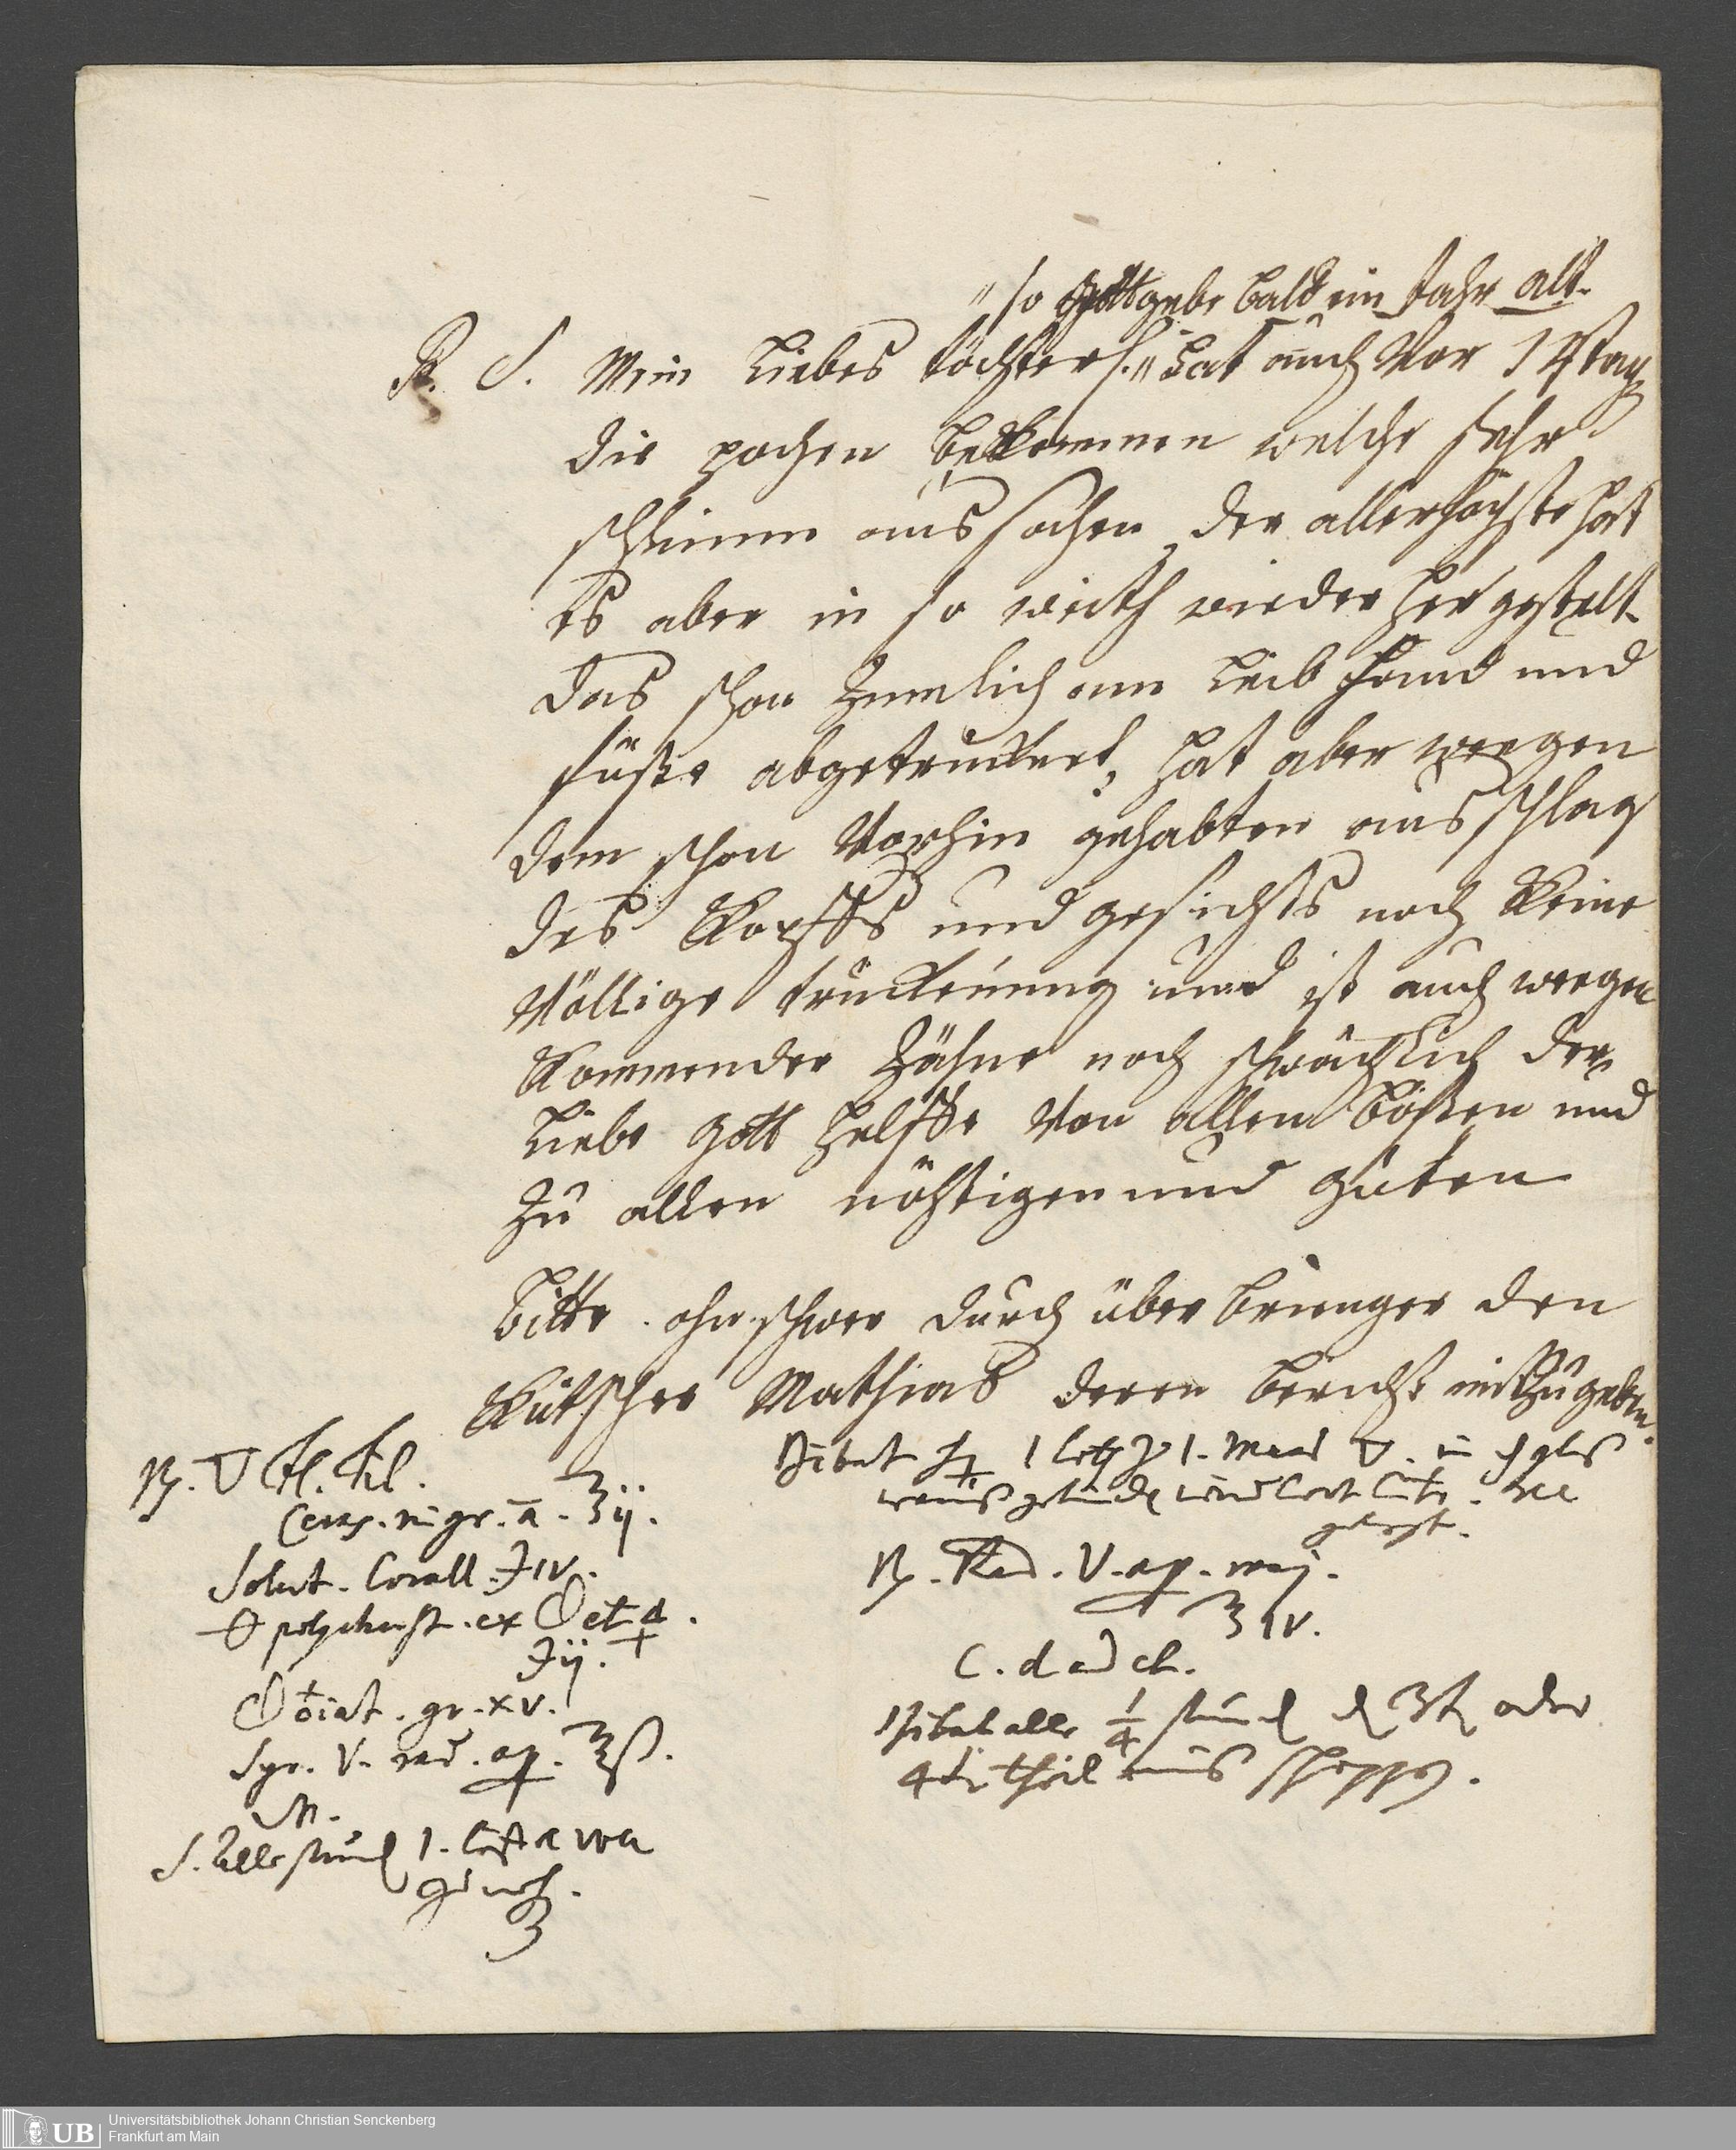 " so Gott gebe bald ein Jahr alt.
P. S. Mein liebes töchterl. " hat auch Vor 14 tag
die pocken bekommen welche sehr
schlimm aus sahen, der allerhöchste hat
es aber in so weith wieder her gestelt.
das schon Zimlich am leib hand und
füße abgetrucknet, hat aber weegen
dem schon Vorhin gehabten ausschlag
des Kopffs und gesichts noch Keine
Völlige truckenung und ist auch weegen
Kommender Zähne noch schwächlich der
liebe Gott helffe Von allem bößen und
Zu allen nöthigen und guten
Bitte ohnschwer durch über bringer den
Kutscher Mathias deren bericht mitzugeben.
Rx. ▽ fl. til.
Ceras. nigr. ā. ℥ij.
Solut. Corall. ℈iv.
polychrest. ex et
℈ij.
gr. xv.
Syr. V. rad. ap. ℥ß.
M.
S. Alle stund 1. 
Bibat 1. Maas ▽. in

Rx. Rad. V. ap. maj.
℥iv.
C. d ad ch.
Bibat alle 1/4 stund oder
4ten theil schoppen.
Universitätsbibliothek Johann Christian Senckenberg
UB Frankfurt am Main